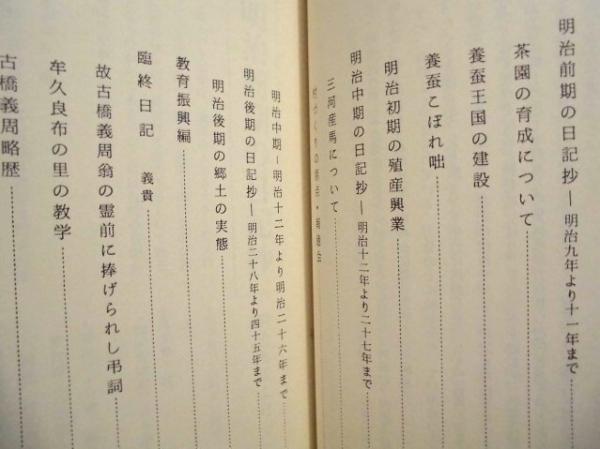 明治前期の日記抄―明治九年より十一年まで
茶園の育成について
養蚕王国の建設
養蚕こぼれ咄
明治初期の殖産興業
明治中期の日記抄―明治十二年より二十七年まで
三河産馬について
明治中期―明治十二年より明治二十六年まで
明治後期の日記抄―明治二十八年より四十五年まで
明治後期の郷土の実態
教育振興編
臨終日記 義貴
故古橋義周翁の霊前に捧げられし弔詞
牟久良布の里の教学
古橋義周略歴